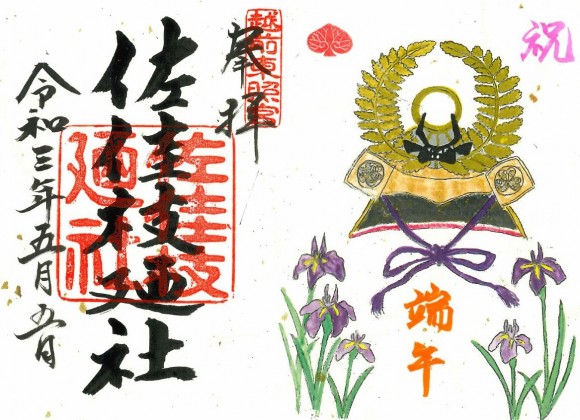 祝
端午
越前東照宮
奉拝
佐佳枝廼社
佐佳枝廼社
令和三年五月五日